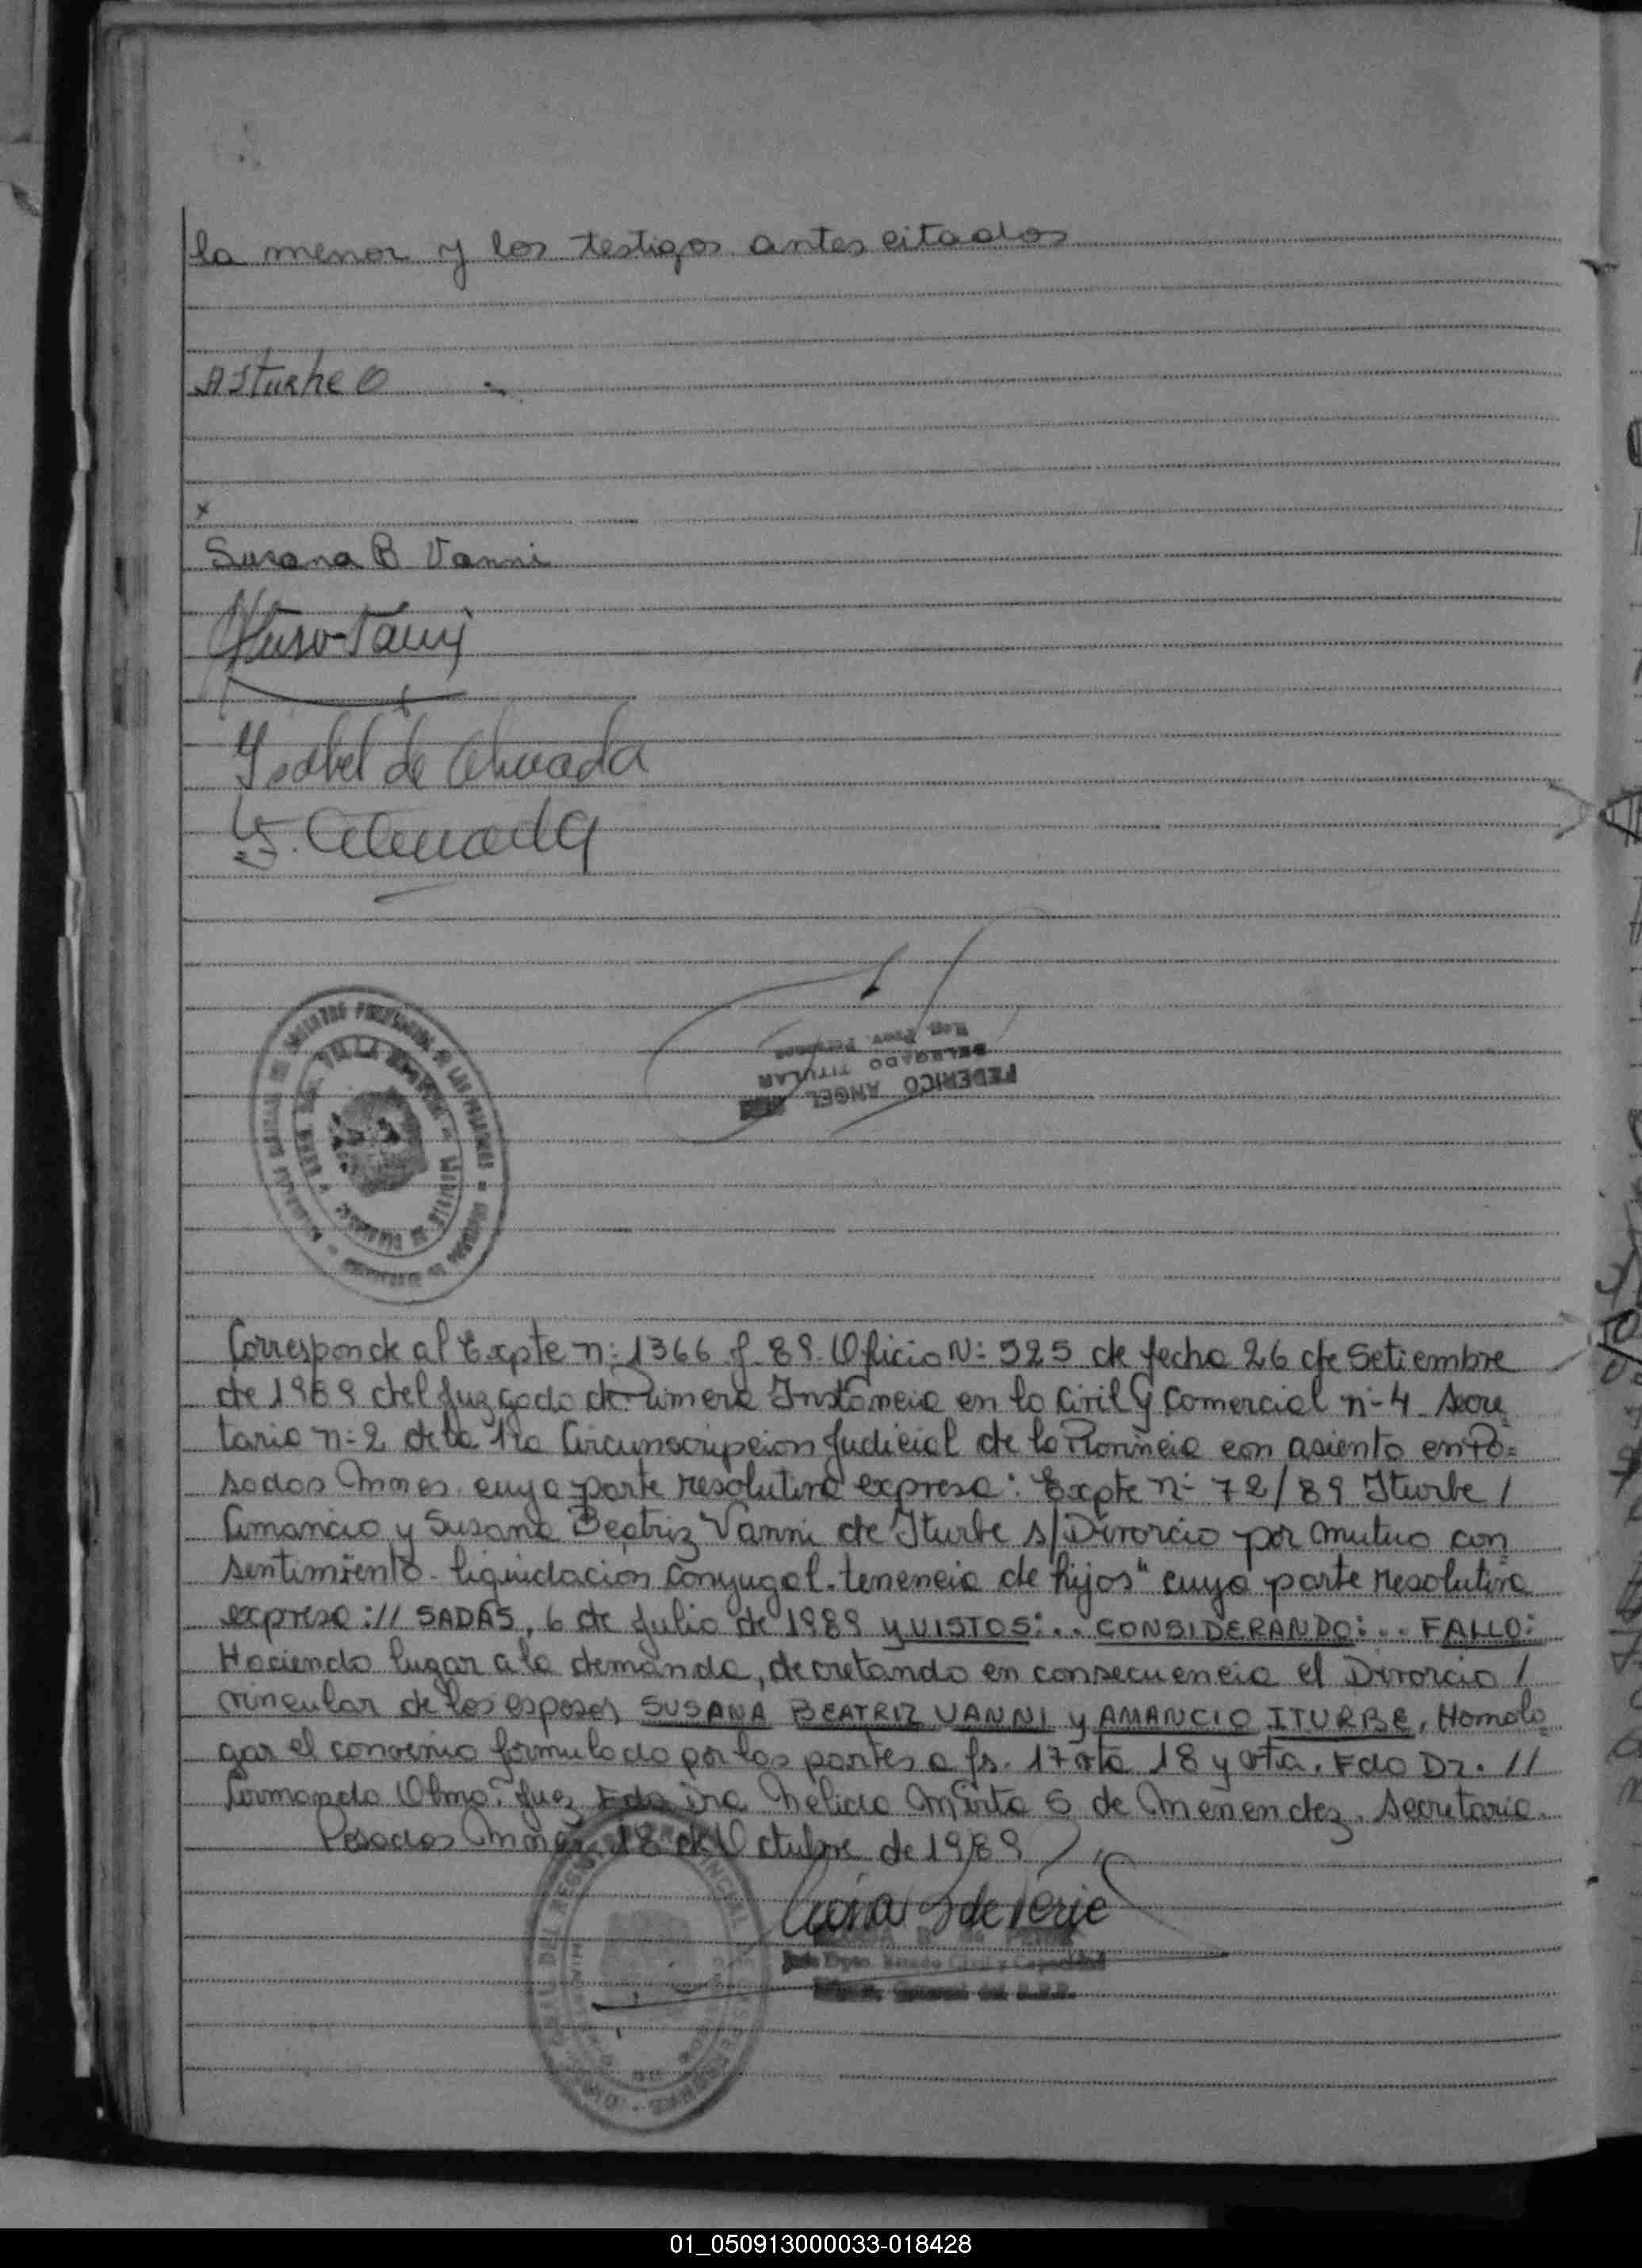 la menor y los testigos antes citados
A Iturbe O
x
Susana B Vanni
Ysabel de Almada
Almada
Reg. Prov. Personas
DELEGADO TITULAR
FEDERICO ANGEL
Corresponde al Expte n: 1366 f. 89. Oficio N: 525 de fecha 26 de Setiembre
de 1989 del Juzgado de Primera Instancia en lo Civil y Comercial n- 4 Secre
taria n: 2 de la 1ra Circunscripcion Judicial de la Provincia con asiento en Po=
sadas Mnes. cuya parte resolutiva expresa: Expte n- 72/89 Iturbe /
Amancio y Susana Beatriz Vanni de Iturbe s/ Divorcio por mutuo con
sentimiento - liquidacion Conyugal. tenencia de hijos" cuya parte resolutiva
expresa :// SADAS, 6 de Julio de 1989 y VISTOS:... CONSIDERANDO:... FALLO:
Haciendo lugar a la demanda, decretando en consecuencia el Divorcio /
vincular de los esposos SUSANA BEATRIZ VANNI y AMANCIO ITURBE, Homolo=
gar el convenio formulado por las partes a fs. 17 vta 18 y vta. Fdo Dr. //
Armando Olmo: Juez Fdo Dra Melicia Mirta S de Menendez. Secretaria.
Posadas Mnes 18 de Octubre de 1989
Jefe Dpto. Estado Civil y Capacidad
01_050913000033-018428